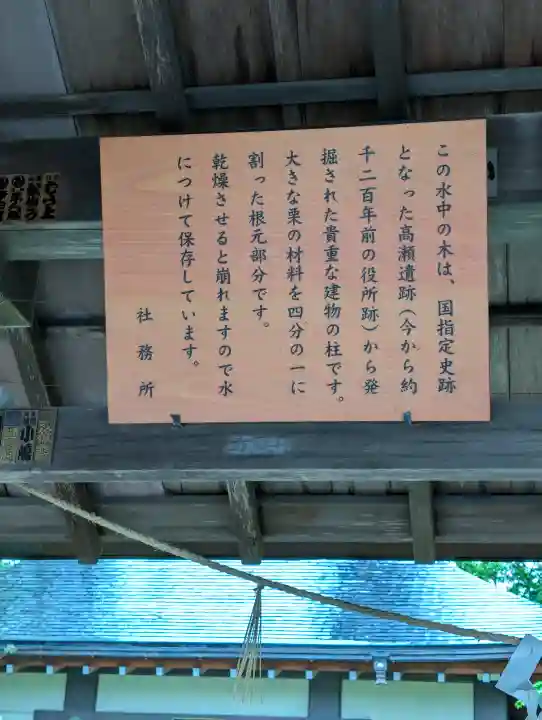 この水中の木は、国指定史跡
となった高瀬遺跡(今から約
千二百年前の役所跡)から発
掘された貴重な建物の柱です。
大きな栗の材料を四分の一に
割った根元部分です。
乾燥させると崩れますので水
につけて保存しています。
社務所